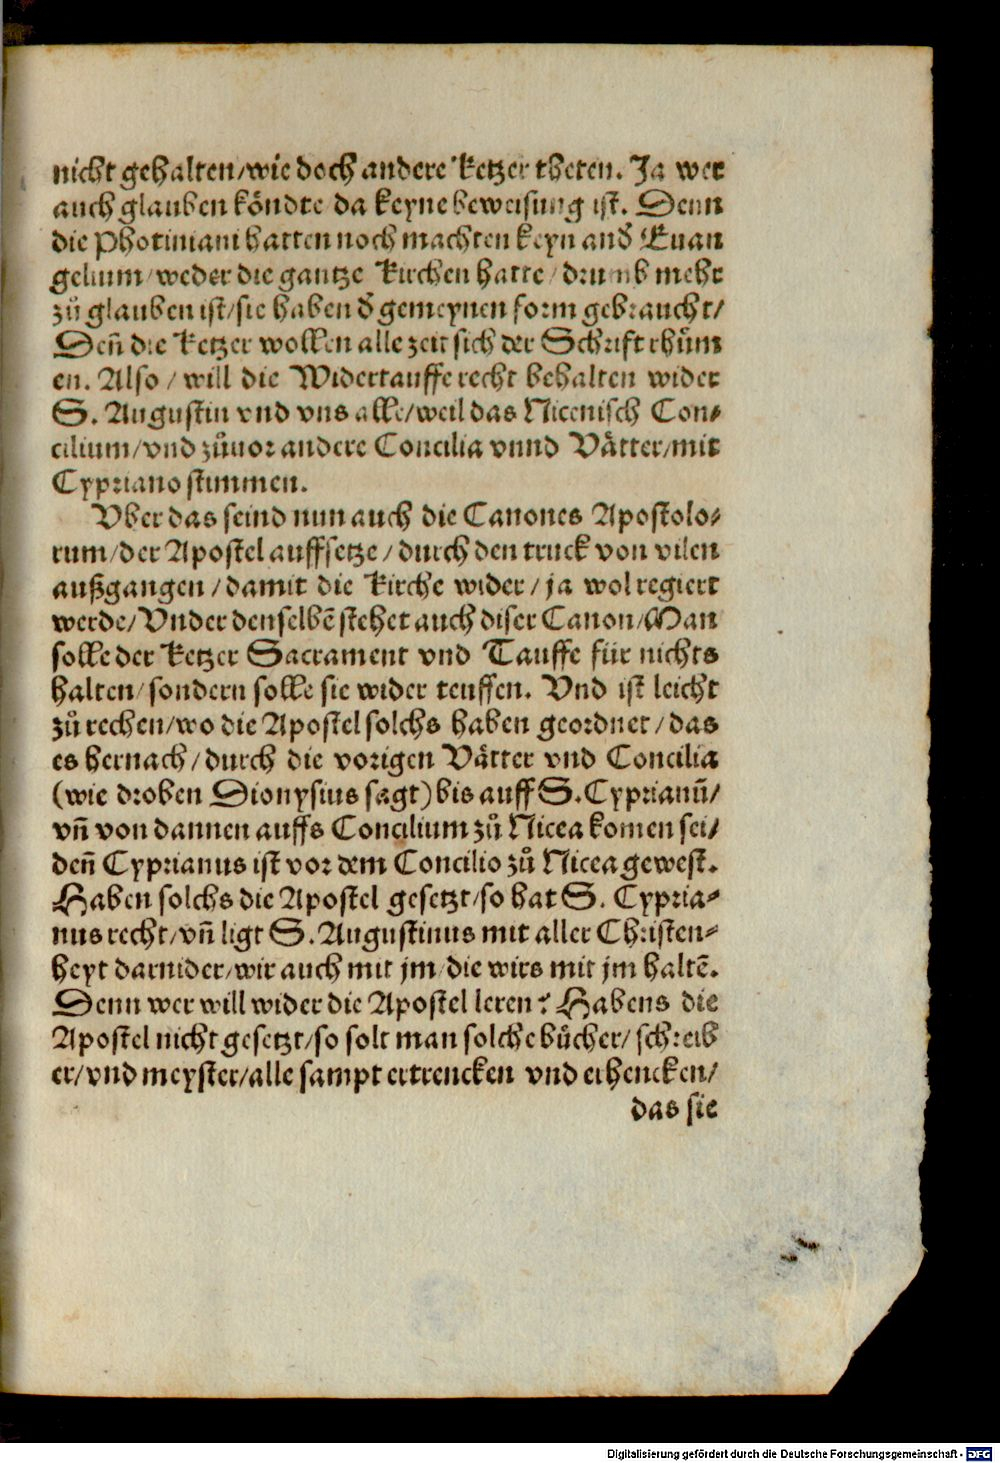 nicht gehalten/wie doch andere Ketzer theten. Ja wer
auch glauben köndte da keyne beweisung ist. Denn
die Photiniani hatten noch machten keyn and̛ Euan
gelium/weder die gantze Kirchen hatte/drumb mehr
zů glauben ist/sie haben d̛ gemeynen form gebraucht/
Deñ die Ketzer wollen alle zeit sich der Schrifft rhům
en. Also/will die Widertauffe recht behalten wider
S. Augustin vnd vns alle/weil das Nicenisch Con⸗
cilium/vnd zůuor andere Concilia vnnd Vätter/mit
Cypriano stimmen.
Vber das seind nun auch die Canones Apostolo⸗
rum/der Apostel auffsetze/durch den truck von vilen
außgangen/damit die Kirche wider/ja wol regiert
werde/Vnder denselbē stehet auch diser Canon/Man
solle der Ketzer Sacrament vnd Tauffe für nichts
halten/sondern solle sie wider teuffen. Vnd ist leicht
zů rechen/wo die Apostel solchs haben geordnet/das
es hernach/durch die vorigen Vätter vnd Concilia
(wie droben Dionysius sagt) bis auff S. Cyprianū/
vñ von dannen auffs Concilium zů Nicea komen sei/
deñ Cyprianus ist vor dem Concilio zů Nicea gewest.
Haben solchs die Apostel gesetzt/so hat S. Cypria⸗
nus recht/vñ ligt S. Augustinus mit aller Christen⸗
heyt darnider/wir auch mit jm/die wirs mit jm haltē.
Denn wer will wider die Apostel leren? Habens die
Apostel nicht gesetzt/so solt man solche bücher/schreib
er/vnd meyster/alle sampt ertrencken vnd erhencken/
das sie
Digitalisierung gefördert durch die Deutsche Forschungsgemeinschaft - DFG